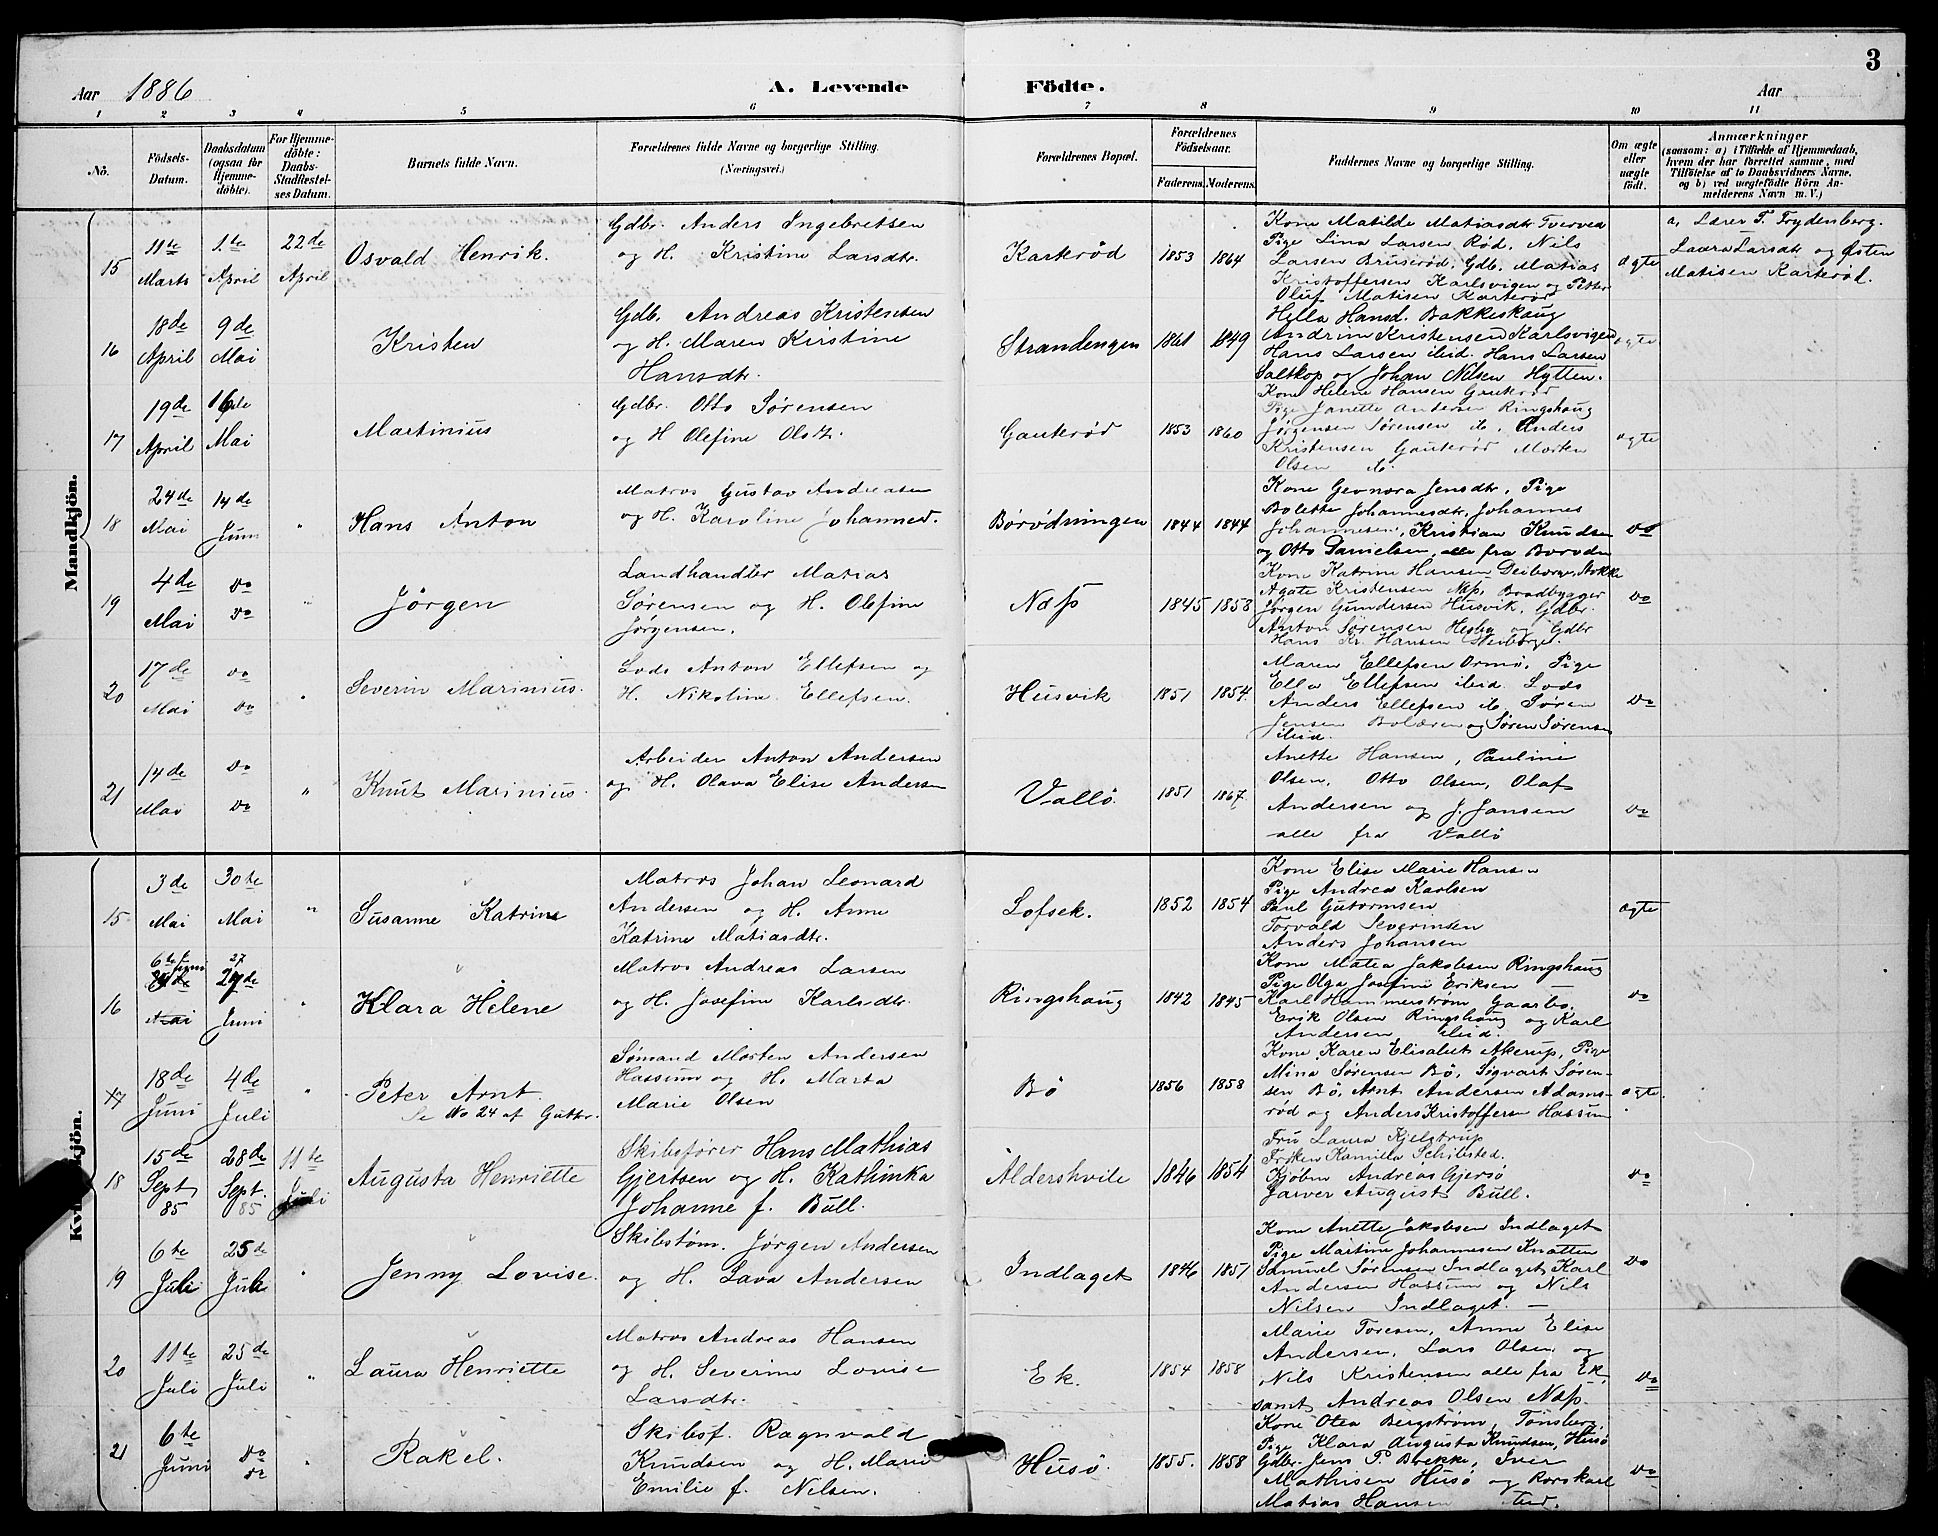 3
Aar 1886
A. Levende Födte.
Aar
1 2 3 4 5 6 7 8 9 10 11
No.
Födsels-Datum.
Daabsdatum (ogsaa for Hjemme-döbte).
For Hjemme-döbte: Daabs-Stadfæstel-ses Datum.
Barnets fulde Navn.
Forældrenes fulde Navne og borgerlige Stilling. (Næringsvei.)
Forældrenes Bopæl.
Forældrenes Födselsaar.
Faderens. Moderens.
Faddernes Navne og borgerlige Stilling.
Om ægte eller uægte født.
Anmærkninger
(saasom: a) i Tilfælde af Hjemmedaab, hvem der har forrettet samme, med Tilföielse af to Daabsvidners Navne, og b) ved uægtefödte Börn Anmelderens Navn m. V.)
Mandkjön.
15 11te Marts 1.te April 22de April Osvald Henrik.
Gdbr. Anders Ingebretsen
og H. Kristine Larsdtr.
Karterød 1853 1864
Kone Matilde Matiasdtr Tverved
Pige Lina Larsen Rød. Nils
Larsen Bruserød. Gdb. Matias
Kristoffersen Karlsvigen og Petter
Oluf Matisen Karterød
ægte
a, Lærer T. Frydenberg.
Laura Larsdtr og Østen
Matisen Karterød.
16 18de April 9de Mai Kristen
Gdb. Andreas Kristensen
og H. Maren Kirstine
Hansdtr.
Strandengen 1861 1849
Hella Hansd. Bakkeskaug
Andrine Kristensen Karlsvigen
Hans Larsen ibid. Hans Larsen
Saltkop og Johan Nilsen Hytten.
ægte
17 19de April 16de Mai Martinius
Gdbr. Otto Sørensen
og H Olefine Olsdtr.
Gauterød 1853 1860
Kone Helene Hansen Gauterød
Pige Janette Andersen Ringshaug
Jørgensen Sørensen ib. Anders
Kristensen Gauterød Morten
Olsen ib.
ægte
18 24de Mai 14de Juni " Hans Anton
Matros Gustav Andreasen
og H. Karoline Johannesd.
Børødningen 1844 1844
Kone Gevnora Jensdtr, Pige
Bolette Johannesdtr, Johannes
Johannesen, Kristian Knudsen
og Otto Danielsen, alle fra Børødn
do
19 4de Mai do do " Jørgen
Landhandler Matias
Sørensen og H. Olefine
Jørgensen.
Næss 1845 1853
Kone Katrine Hansen Deiborge, Stokke
Agate Kristensen Næs, Baadbygger
Jørgen Gundersen Husvik, Gdbr.
Anton Sørensen Hesby og Gdbr
Hans Kr. Hansen Deiborge.
do
20 17de Mai do do " Severin Marinius.
Lods Anton Ellefsen og
H. Nikoline Ellefsen.
Husvik 1851 1854
Maren Ellefsen Ormø, Pige
Ella Ellefsen ibid. Lods
Anders Ellefsen ib Søren
Jensen Bolæren og Søren Sørensen
ibid.
do
21 14de Mai do do " Knut Marinius.
Arbeider Anton Andersen
og H. Olava Elise Andersen
Vallø 1851 1867
Anette Hansen, Pauline
Olsen, Otto Olsen, Olaf
Andersen og J. Jansen
alle fra Vallø
do
Kvindkjön.
15 3de Mai 30te Mai " Susanne Katrine
Matros Johan Leonard
Andersen og H. Anne
Katrine Matiasdtr.
Lofsek. 1852 1854
Kone Elise Marie Hansen
Pige Andrea Karlsen
Paul Gutormsen
Torvald Severinsen
Anders Johansen
ægte
16 6te Juni 27 Juni " Klara Helene
Matros Andreas Larsen
og H. Josefine Karlsdtr.
Ringshaug 1842 1845
Kone Matea Jakobsen Ringshaug
Pige Olga Josefine Eriksen —
Karl Hammerstrøm Gaarbo.
Erik Olsen Ringshaug og Karl
Andersen ibid.
do
17 18de Juni 4de Juli " Peter Arnt
Se No 24 af Gutter.
Sømand Morten Andersen
Hassum og H. Marta
Marie Olsen
Bö 1856 1858
Kone Karen Elisabet Akerup, Pige
Mina Sørensen Bö, Sigvart Søren-
sen Bö, Arnt Andersen Adams-
rød og Anders Kristoffersen Hassum
ægte.
18 15de Sept 85 28de Sept. 85 11te Juli Augusta Henriette
Skibsfører Hans Mathias
Gjertsen og H. Kathinka
Johanne f. Bull.
Aldershvile 1846 1854
Fru Laura Kjelstrup
Frøken Kamilla Schibsted.
Kjøbm Andreas Gjersø
Garver August Bull.
do
19 6te Juli 25de Juli " Jenny Lovise.
Skibstøm. Jørgen Andersen
og H. Lava Andersen
Indlaget 1846 1851
Kone Anette Jakobsen Indlaget
Pige Martine Johannesen Knatten
Samuel Sørensen Indlaget, Karl
Andersen Hassum og Nils
Nilsen Indlaget. —
do
20 11te Juli 25de Juli " Laura Henriette
Matros Andreas Hansen
og H. Severine Lovise
Larsdtr.
Ek. 1854 1858
Marie Toresen, Anne Elise
Andersen, Lars Olsen og
Nils Kristensen alle fra Ek,
samt Andreas Olsen Næss.
do
21 6te Juni do do " Rakel.
Skibsf. Ragnvald
Knudsen og H. Marie
Emilie f. Nilsen.
Husø 1855. 1858
Kone Olea Bergstrøm, Tønsberg,
Pige Klara Augusta Knudsen, Husø
Gdbr. Jens P. Brekke, Iver
Mathisen Husø og Rorskarl
Matias Hansen ibid.
do